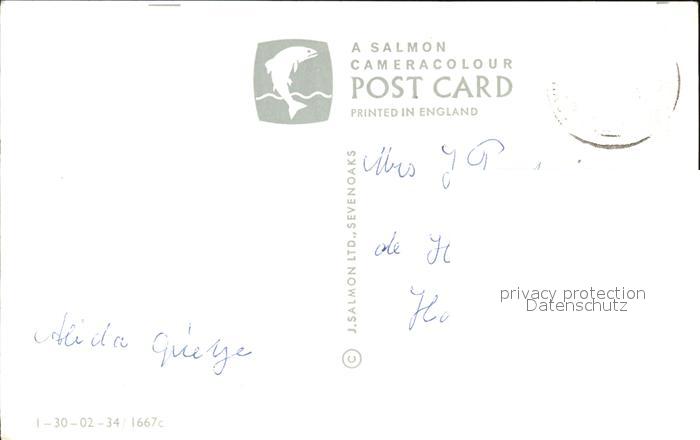 A SALMON
CAMERACOLOUR
POST CARD
PRINTED IN ENGLAND
© J. SALMON LTD., SEVENOAKS
Mrs J
de H
Ho
privacy protection
Datenschutz
Alida
1-30-02-34/1667c